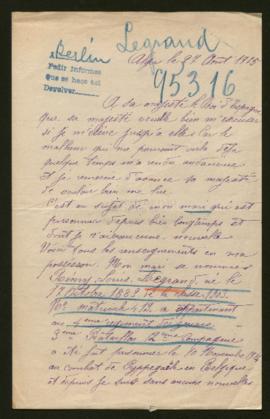 Berlín
Legrand
Pedir Informes
que se hace así
Devolver
95316
Alger le 27 Août 1915
A sa majesté le Roi d'Espagne
que sa majesté veuille bien m'excuser
si je m'élève jusqu'à elle car le
malheur qui me poursuit voilà déjà
quelque temps m'a rendu audacieuse
Et je remercie d'avance sa majesté
de vouloir bien me lire
C'est au sujet de mon mari qui est
prisonnier depuis bien longtemps et
dont je n'ai aucune nouvelle
Voici tous les renseignements en ma
possession. Mon mari se nomme
Louis Legrand, né le
Octobre 1883 de la classe 1903
Nº matricule il appartenait
au régiment
3ème Bataillon 12ème Compagnie
a été fait prisonnier le 10 Novembre 1914
au combat de en Belgique
et depuis je suis sans aucune nouvelle